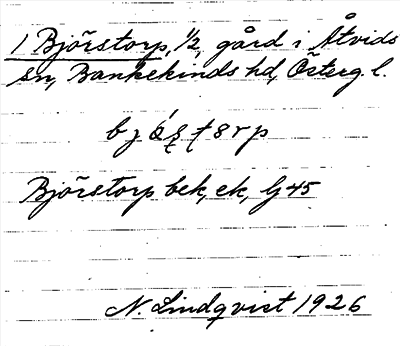 1 Björstorp, 1/2, gård i Åtvids
sn, Bankekinds hd, Österg. l.
Björstorp bek, ek, lj 45
N. Lindqvist 1926